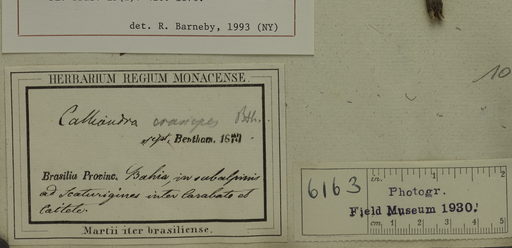 det. R. Barneby, 1993 (NY)
HERBARIUM REGIUM MONACENSE.
Calliandra Bth.
Bentham. 18
Brasilia Provinc. Bahia, in subalpinis
ad scaturigines inter Carabato et
Caitete.
Martii iter brasiliense.
10
6163
in. 1 2
Photogr.
Field Museum 1930.
cm. 1 2 3 4 5